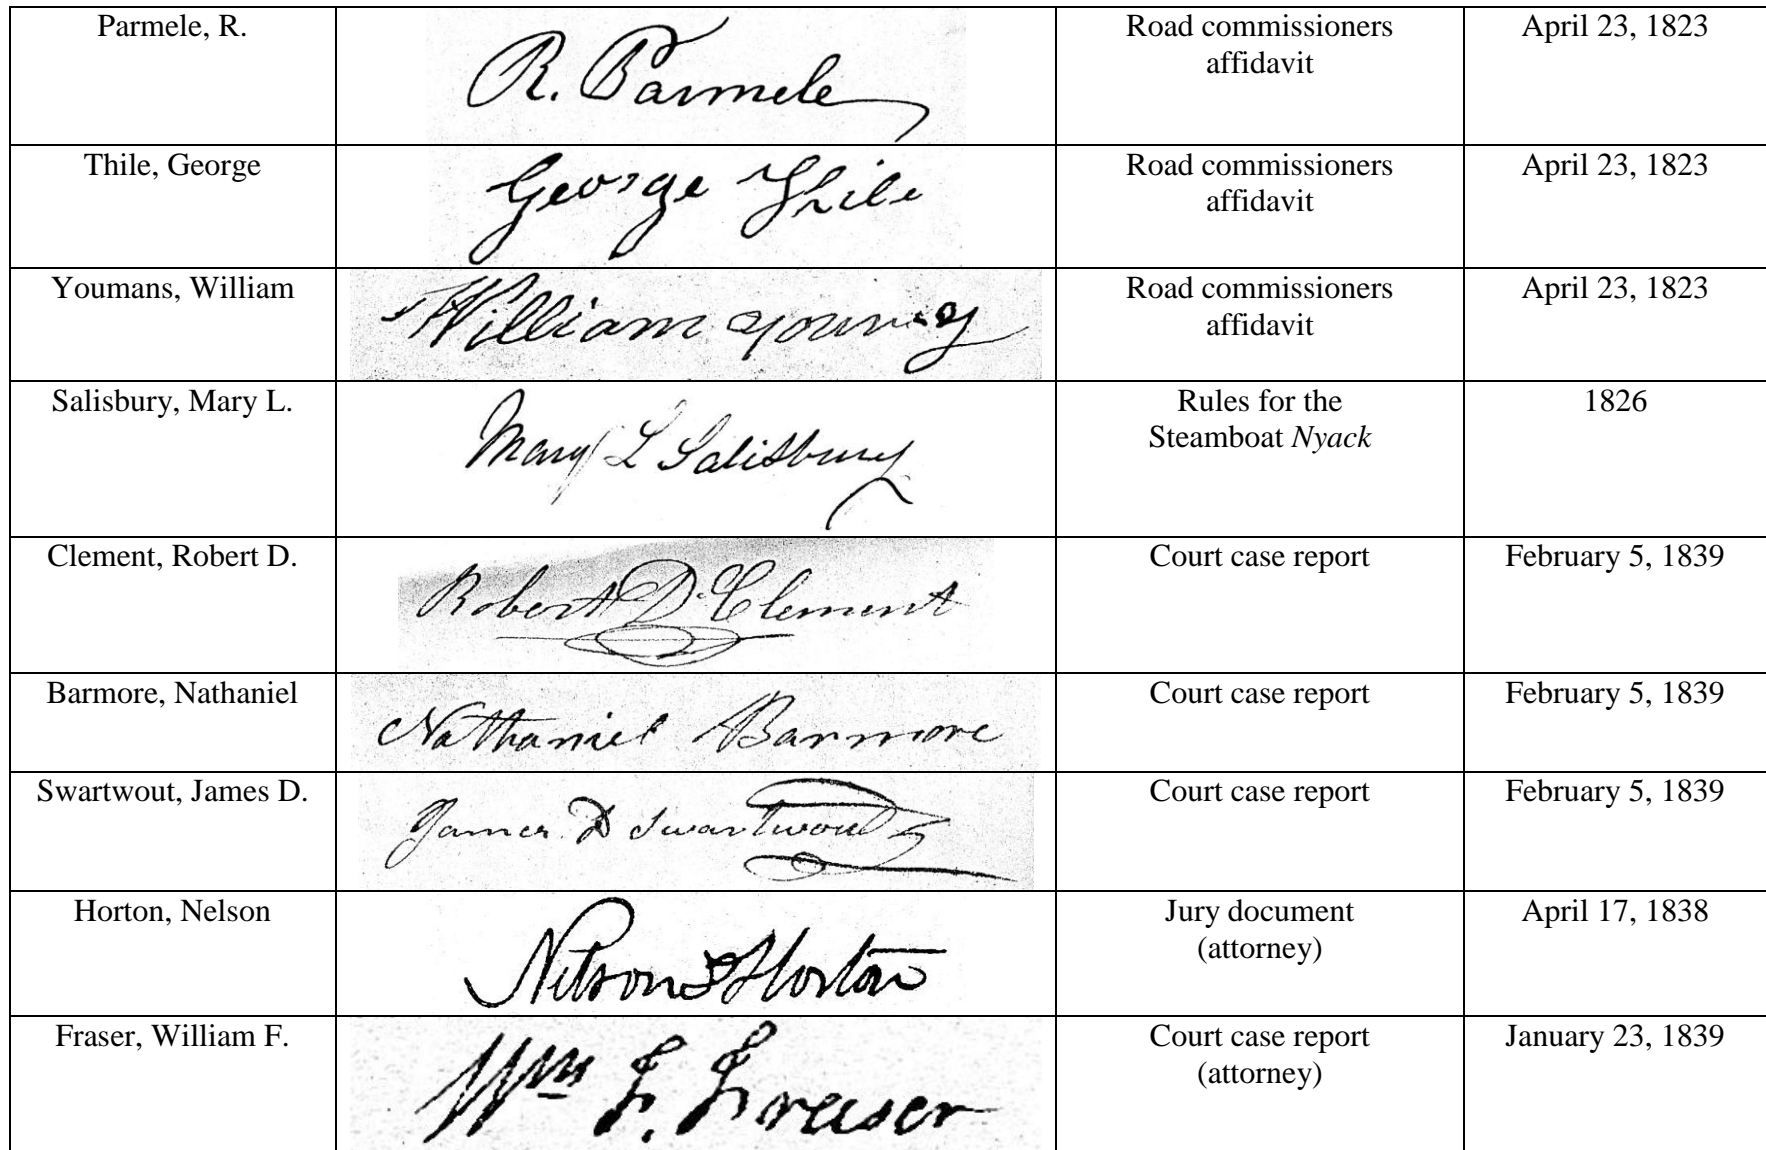 Parmele, R.
R. Parmele
Road commissioners
affidavit
April 23, 1823
Thile, George
George Thile
Road commissioners
affidavit
April 23, 1823
Youmans, William
William
Road commissioners
affidavit
April 23, 1823
Salisbury, Mary L.
Mary L Salisbury
Rules for the
Steamboat Nyack
1826
Clement, Robert D.
Robert D. Clement
Court case report
February 5, 1839
Barmore, Nathaniel
Nathaniel Barmore
Court case report
February 5, 1839
Swartwout, James D.
James D Swartwout
Court case report
February 5, 1839
Horton, Nelson
Nelson Horton
Jury document
(attorney)
April 17, 1838
Fraser, William F.
Wm F. Fraser
Court case report
(attorney)
January 23, 1839